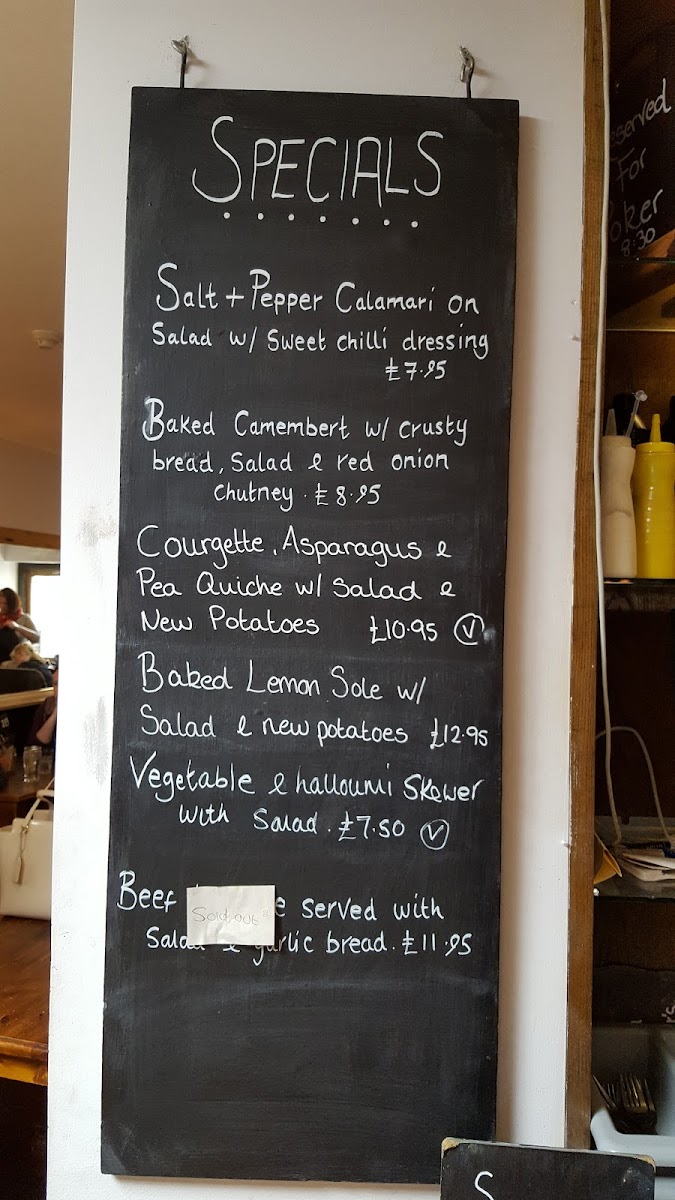 SPECIALS
Salt + Pepper Calamari on
Salad w/ Sweet chilli dressing
£7.95
Baked Camembert w/ crusty
bread, Salad & red onion
chutney. £8.95
Courgette, Asparagus &
Pea Quiche w/ Salad &
New Potatoes £10.95 V
Baked Lemon Sole w/
Salad & new potatoes £12.95
Vegetable & halloumi Skewer
with Salad. £7.50 V
Beef served with
Sold out
Salad & garlic bread. £11.95
Reserved
For
Poker
8:30
S